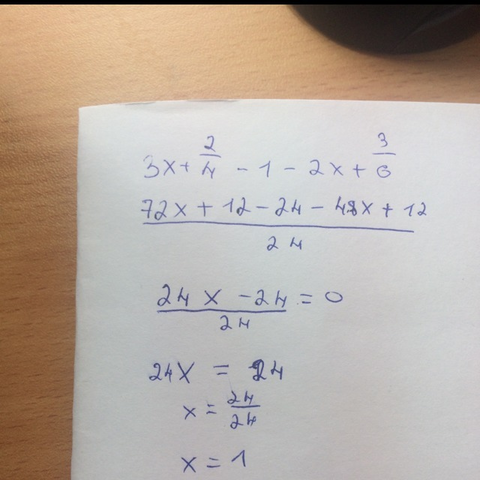 3x + 2/4 - 1 - 2x + 3/6
72x + 12 - 24 - 48x + 12
24
24x - 24 = 0
24
24x = 24
x = 24/24
x = 1